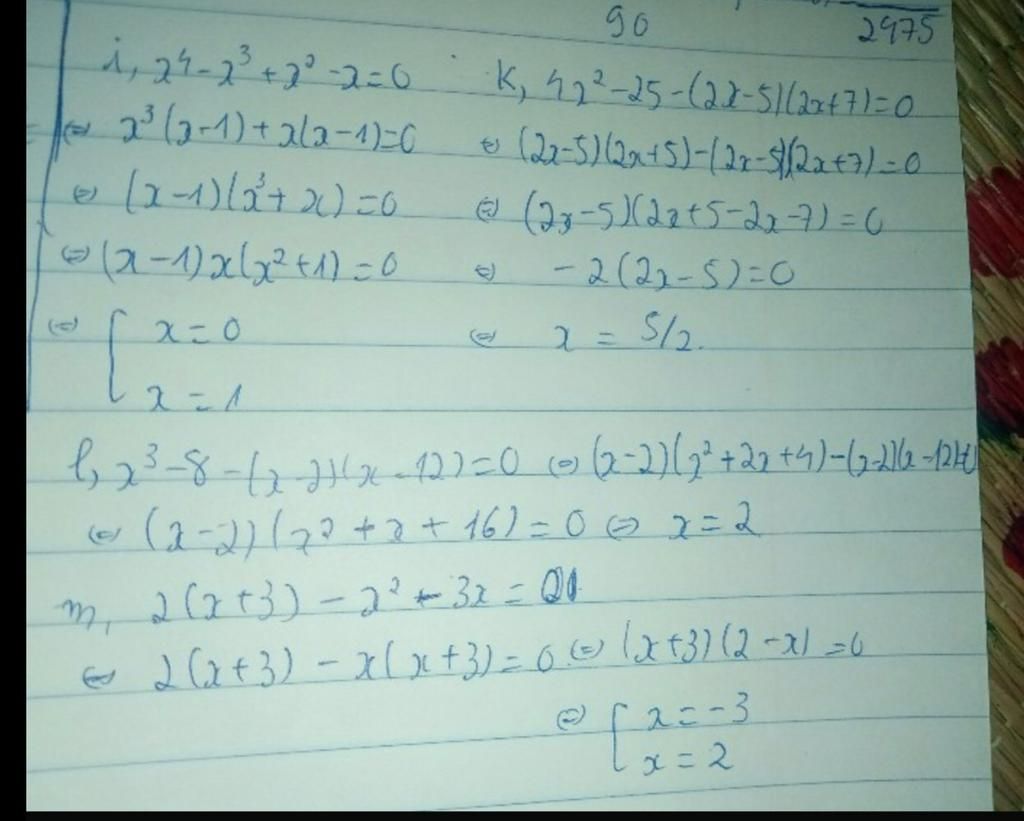 90
2975
i, x⁴ - x³ + x² - x = 0
⇔ x³(x-1) + x(x-1) = 0
⇔ (x-1)(x³ + x) = 0
⇔ (x-1)x(x²+1) = 0
⇔ [ x = 0
x = 1
K, 4x² - 25 - (2x-5)(2x+7) = 0
⇔ (2x-5)(2x+5) - (2x-5)(2x+7) = 0
⇔ (2x-5)(2x+5-2x-7) = 0
⇔ -2(2x-5) = 0
⇔ x = 5/2.
l, x³ - 8 - (x-2)(x-12) = 0 ⇔ (x-2)(x²+2x+4) - (x-2)(x-12)=0
⇔ (x-2)(x² + x + 16) = 0 ⇔ x = 2
m, 2(x+3) - x² - 3x = 0
⇔ 2(x+3) - x(x+3) = 0 ⇔ (x+3)(2-x) = 0
⇔ [ x = -3
x = 2